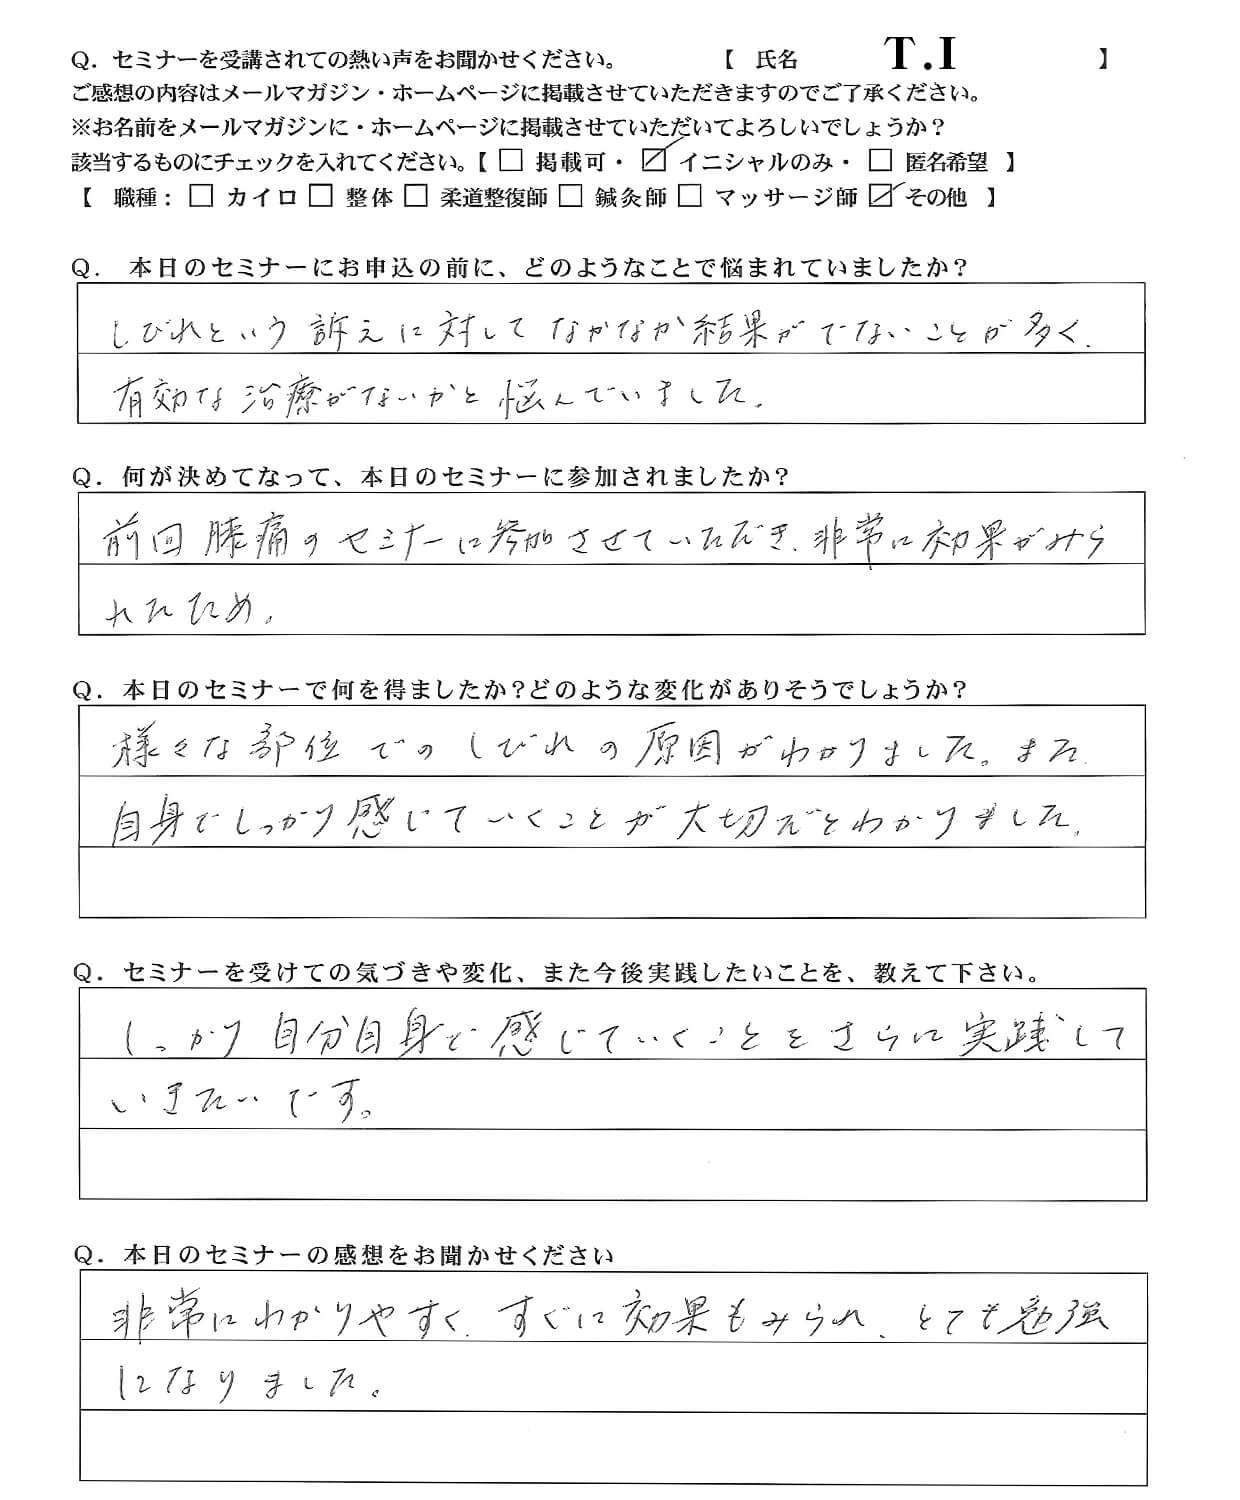 Q. セミナーを受講されての熱い声をお聞かせください。 【 氏名 T.I 】
ご感想の内容はメールマガジン・ホームページに掲載させていただきますのでご了承ください。
※お名前をメールマガジンに・ホームページに掲載させていただいてよろしいでしょうか?
該当するものにチェックを入れてください。【 □ 掲載可・ ☑ イニシャルのみ・ □ 匿名希望 】
【 職種: □ カイロ □ 整体 □ 柔道整復師 □ 鍼灸師 □ マッサージ師 ☑ その他 】
Q. 本日のセミナーにお申込の前に、どのようなことで悩まれていましたか?
しびれという訴えに対してなかなか結果がでないことが多く、
有効な治療がないかと悩んでいました。
Q. 何が決めてなって、本日のセミナーに参加されましたか?
前回膝痛のセミナーに参加させていただき、非常に効果がみら
れたため。
Q. 本日のセミナーで何を得ましたか?どのような変化がありそうでしょうか?
様々な部位でのしびれの原因がわかりました。また、
自身でしっかり感じていくことが大切だとわかりました。
Q. セミナーを受けての気づきや変化、また今後実践したいことを、教えて下さい。
しっかり自分自身で感じていくことをさらに実践して
いきたいです。
Q. 本日のセミナーの感想をお聞かせください
非常にわかりやすく、すぐに効果もみられ、とても勉強
になりました。